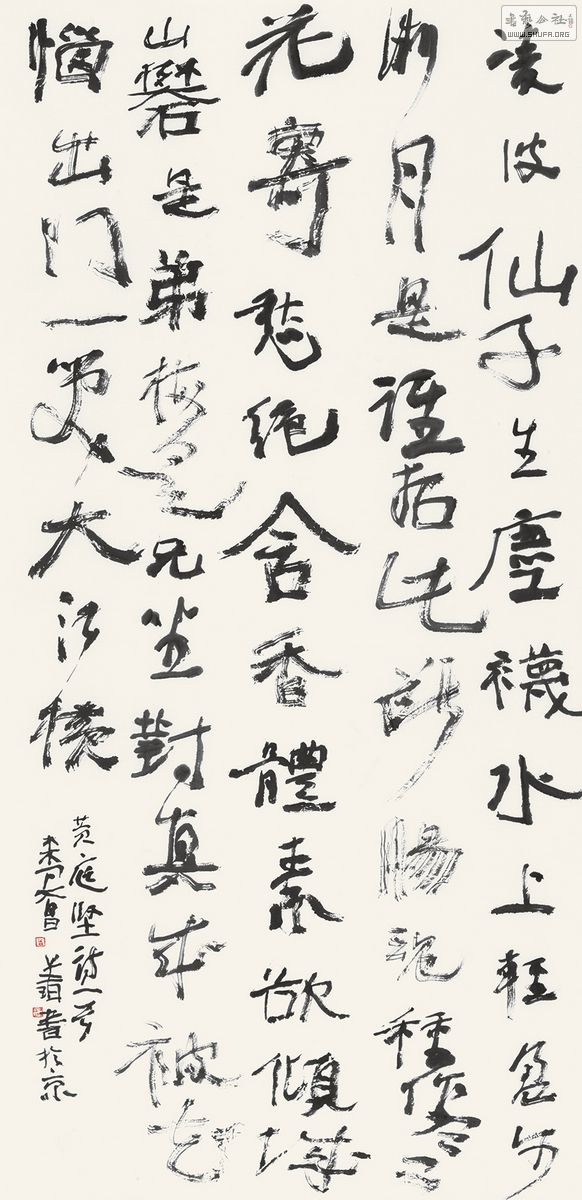 書藝公社
WWW.SHUFA.ORG
凌波仙子生塵襪水上輕盈步
微月是誰招此斷腸魂種作寒
花寄愁絕含香體素欲傾城
山礬是弟梅是兄坐對真成被花
惱出門一笑大江橫
黃庭堅詩一首
書於京